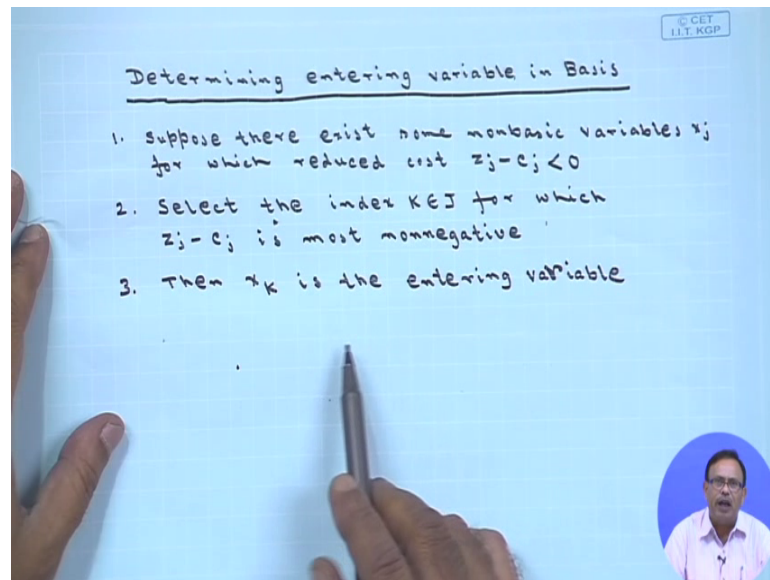 © CET
I.I.T. KGP
Determining entering variable in Basis
1. Suppose there exist some nonbasic variables xj
for which reduced cost zj - cj < 0
2. Select the index K ∈ J for which
zj - cj is most nonnegative
3. Then xK is the entering variable